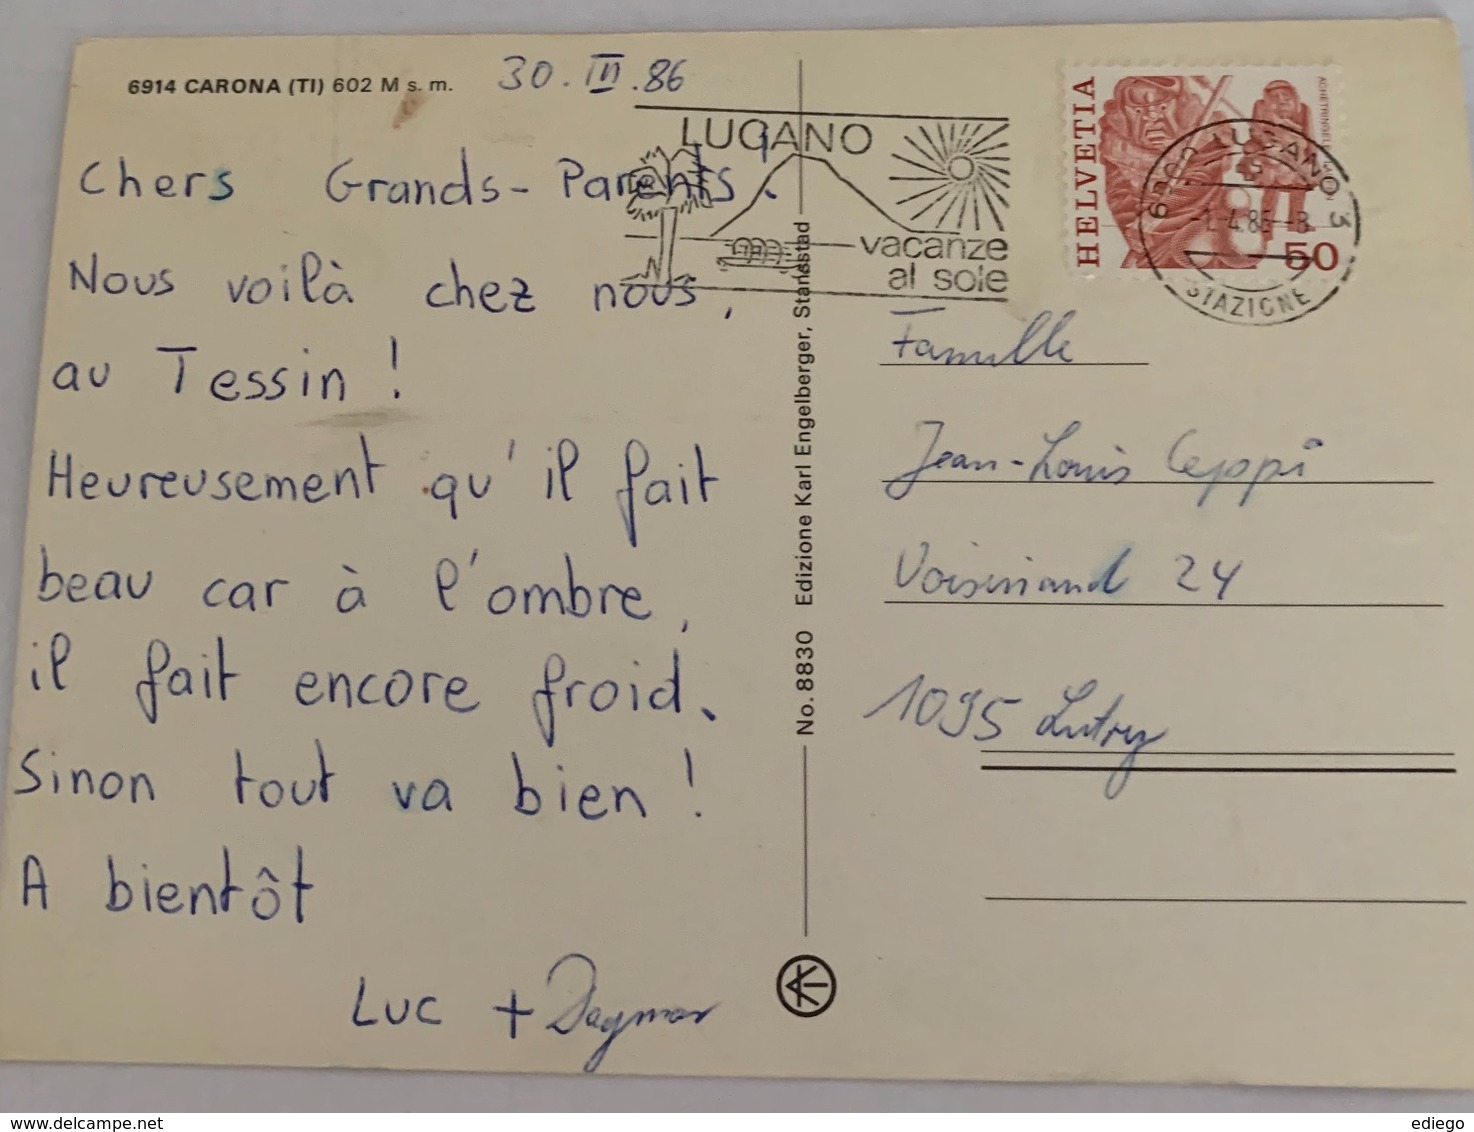 6914 CARONA (TI) 602 M s. m.
30. III .86
Chers Grands-Parents.
Nous voilà chez nous,
au Tessin !
Heureusement qu'il fait
beau car à l'ombre,
il fait encore froid.
Sinon tout va bien !
A bientôt
Luc + Dagmar
No. 8830 Edizione Karl Engelberger, Stansstad
LUGANO
vacanze
al sole
HELVETIA
50
6900 LUGANO 3
-1.4.86--8
STAZIONE
Famille
Jean-Louis Ceppi
Voisinand 24
1095 Lutry
ediego